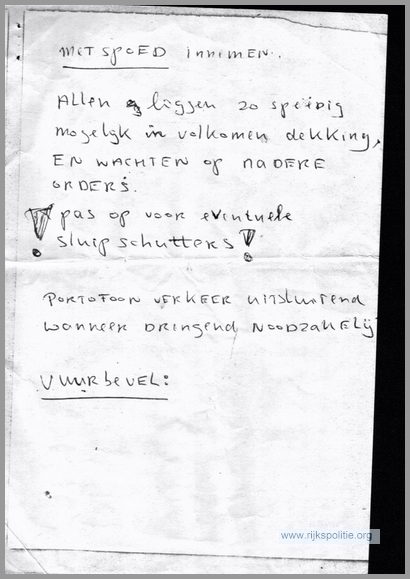 MET SPOED INNEMEN.
Allen liggen zo speidig
mogelijk in volkomen dekking,
EN WACHTEN OP NADERE
ORDERS.
! pas op voor eventuele
sluipschutters !
PORTOFOON VERKEER uitsluitend
WANNEER DRINGEND NOODZAKELIJ
VUURBEVEL:
www.rijkspolitie.org